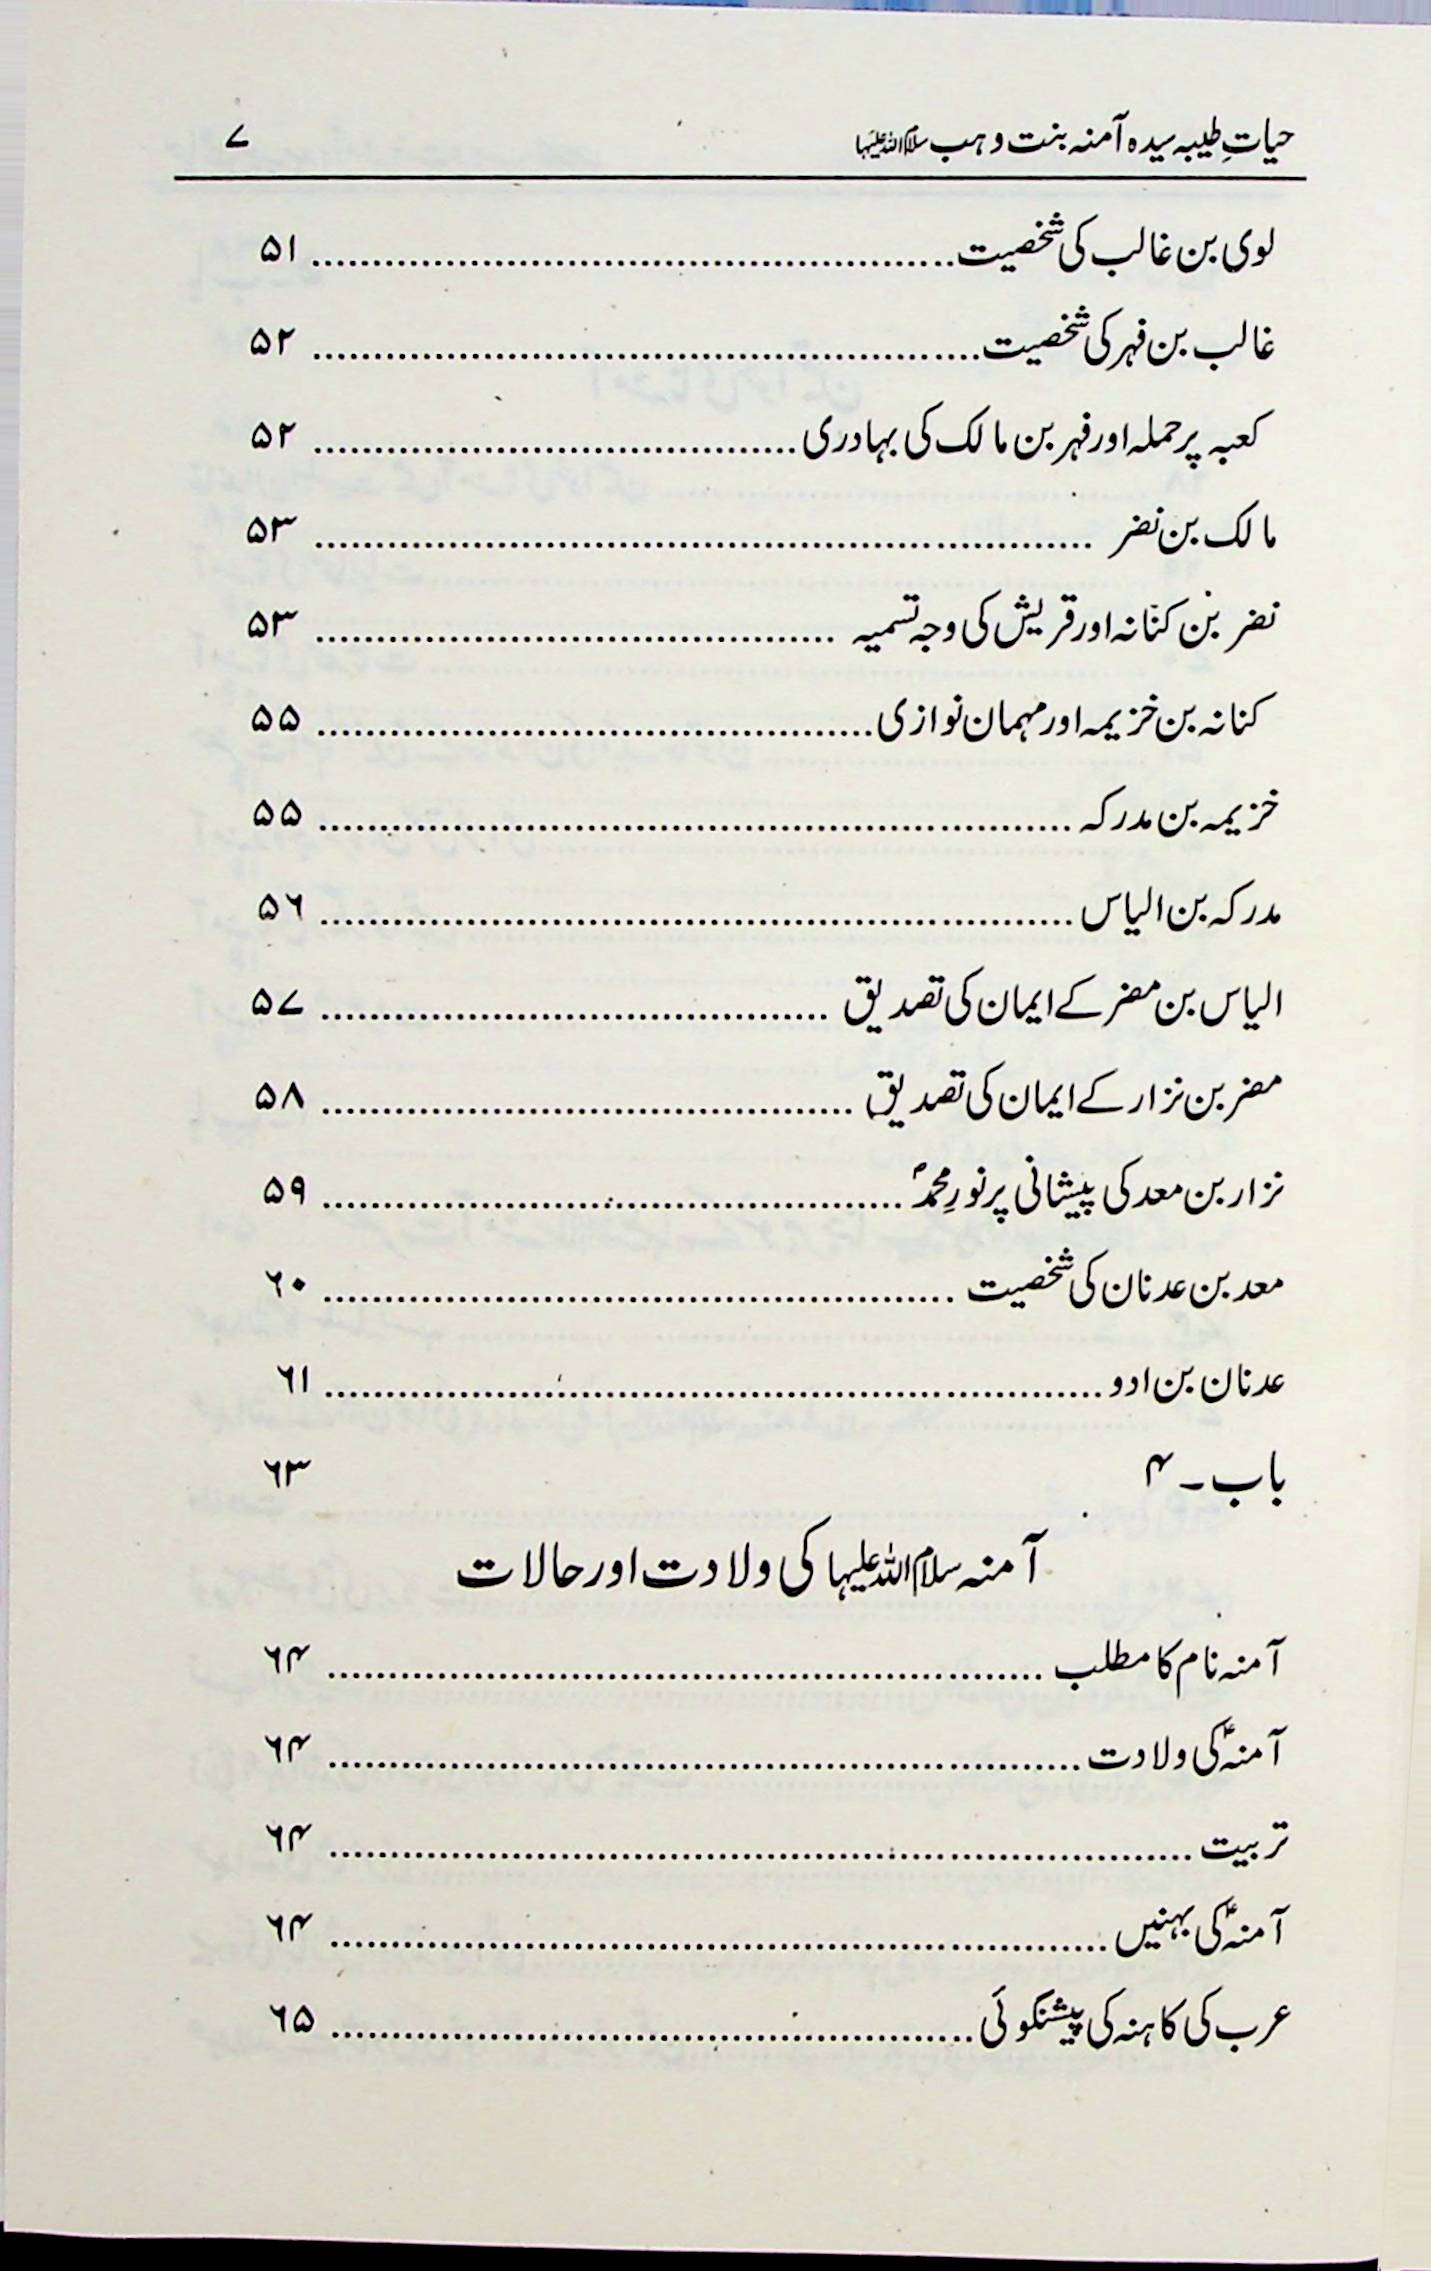 حیاتِ طیبہ سیدہ آمنہ بنت وہب سلام اللہ علیہا ۷
لوی بن غالب کی شخصیت ۵۱
غالب بن فہر کی شخصیت ۵۲
کعبہ پر حملہ اور فہر بن مالک کی بہادری ۵۲
مالک بن نضر ۵۳
نضر بن کنانہ اور قریش کی وجہ تسمیہ ۵۳
کنانہ بن خزیمہ اور مہمان نوازی ۵۵
خزیمہ بن مدرکہ ۵۵
مدرکہ بن الیاس ۵۶
الیاس بن مضر کے ایمان کی تصدیق ۵۷
مضر بن نزار کے ایمان کی تصدیق ۵۸
نزار بن معد کی پیشانی پر نورِ محمدؐ ۵۹
معد بن عدنان کی شخصیت ۶۰
عدنان بن ادو ۶۱
باب ۔ ۴ ۶۳
آمنہ سلام اللہ علیہا کی ولادت اور حالات
آمنہ نام کا مطلب ۶۴
آمنہؑ کی ولادت ۶۴
تربیت ۶۴
آمنہؑ کی بہنیں ۶۴
عرب کی کاہنہ کی پیشنگوئی ۶۵